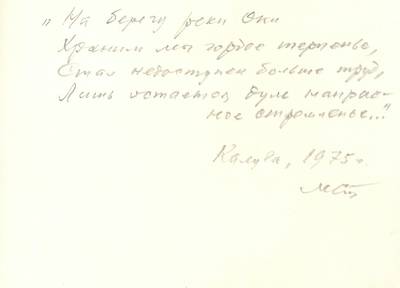 "На берегу реки Оки
Храним мы гордое терпенье,
Стал недоступен больше труд,
Лишь остается дум напрас-
ное стремленье..."
Калуга, 1975 г.